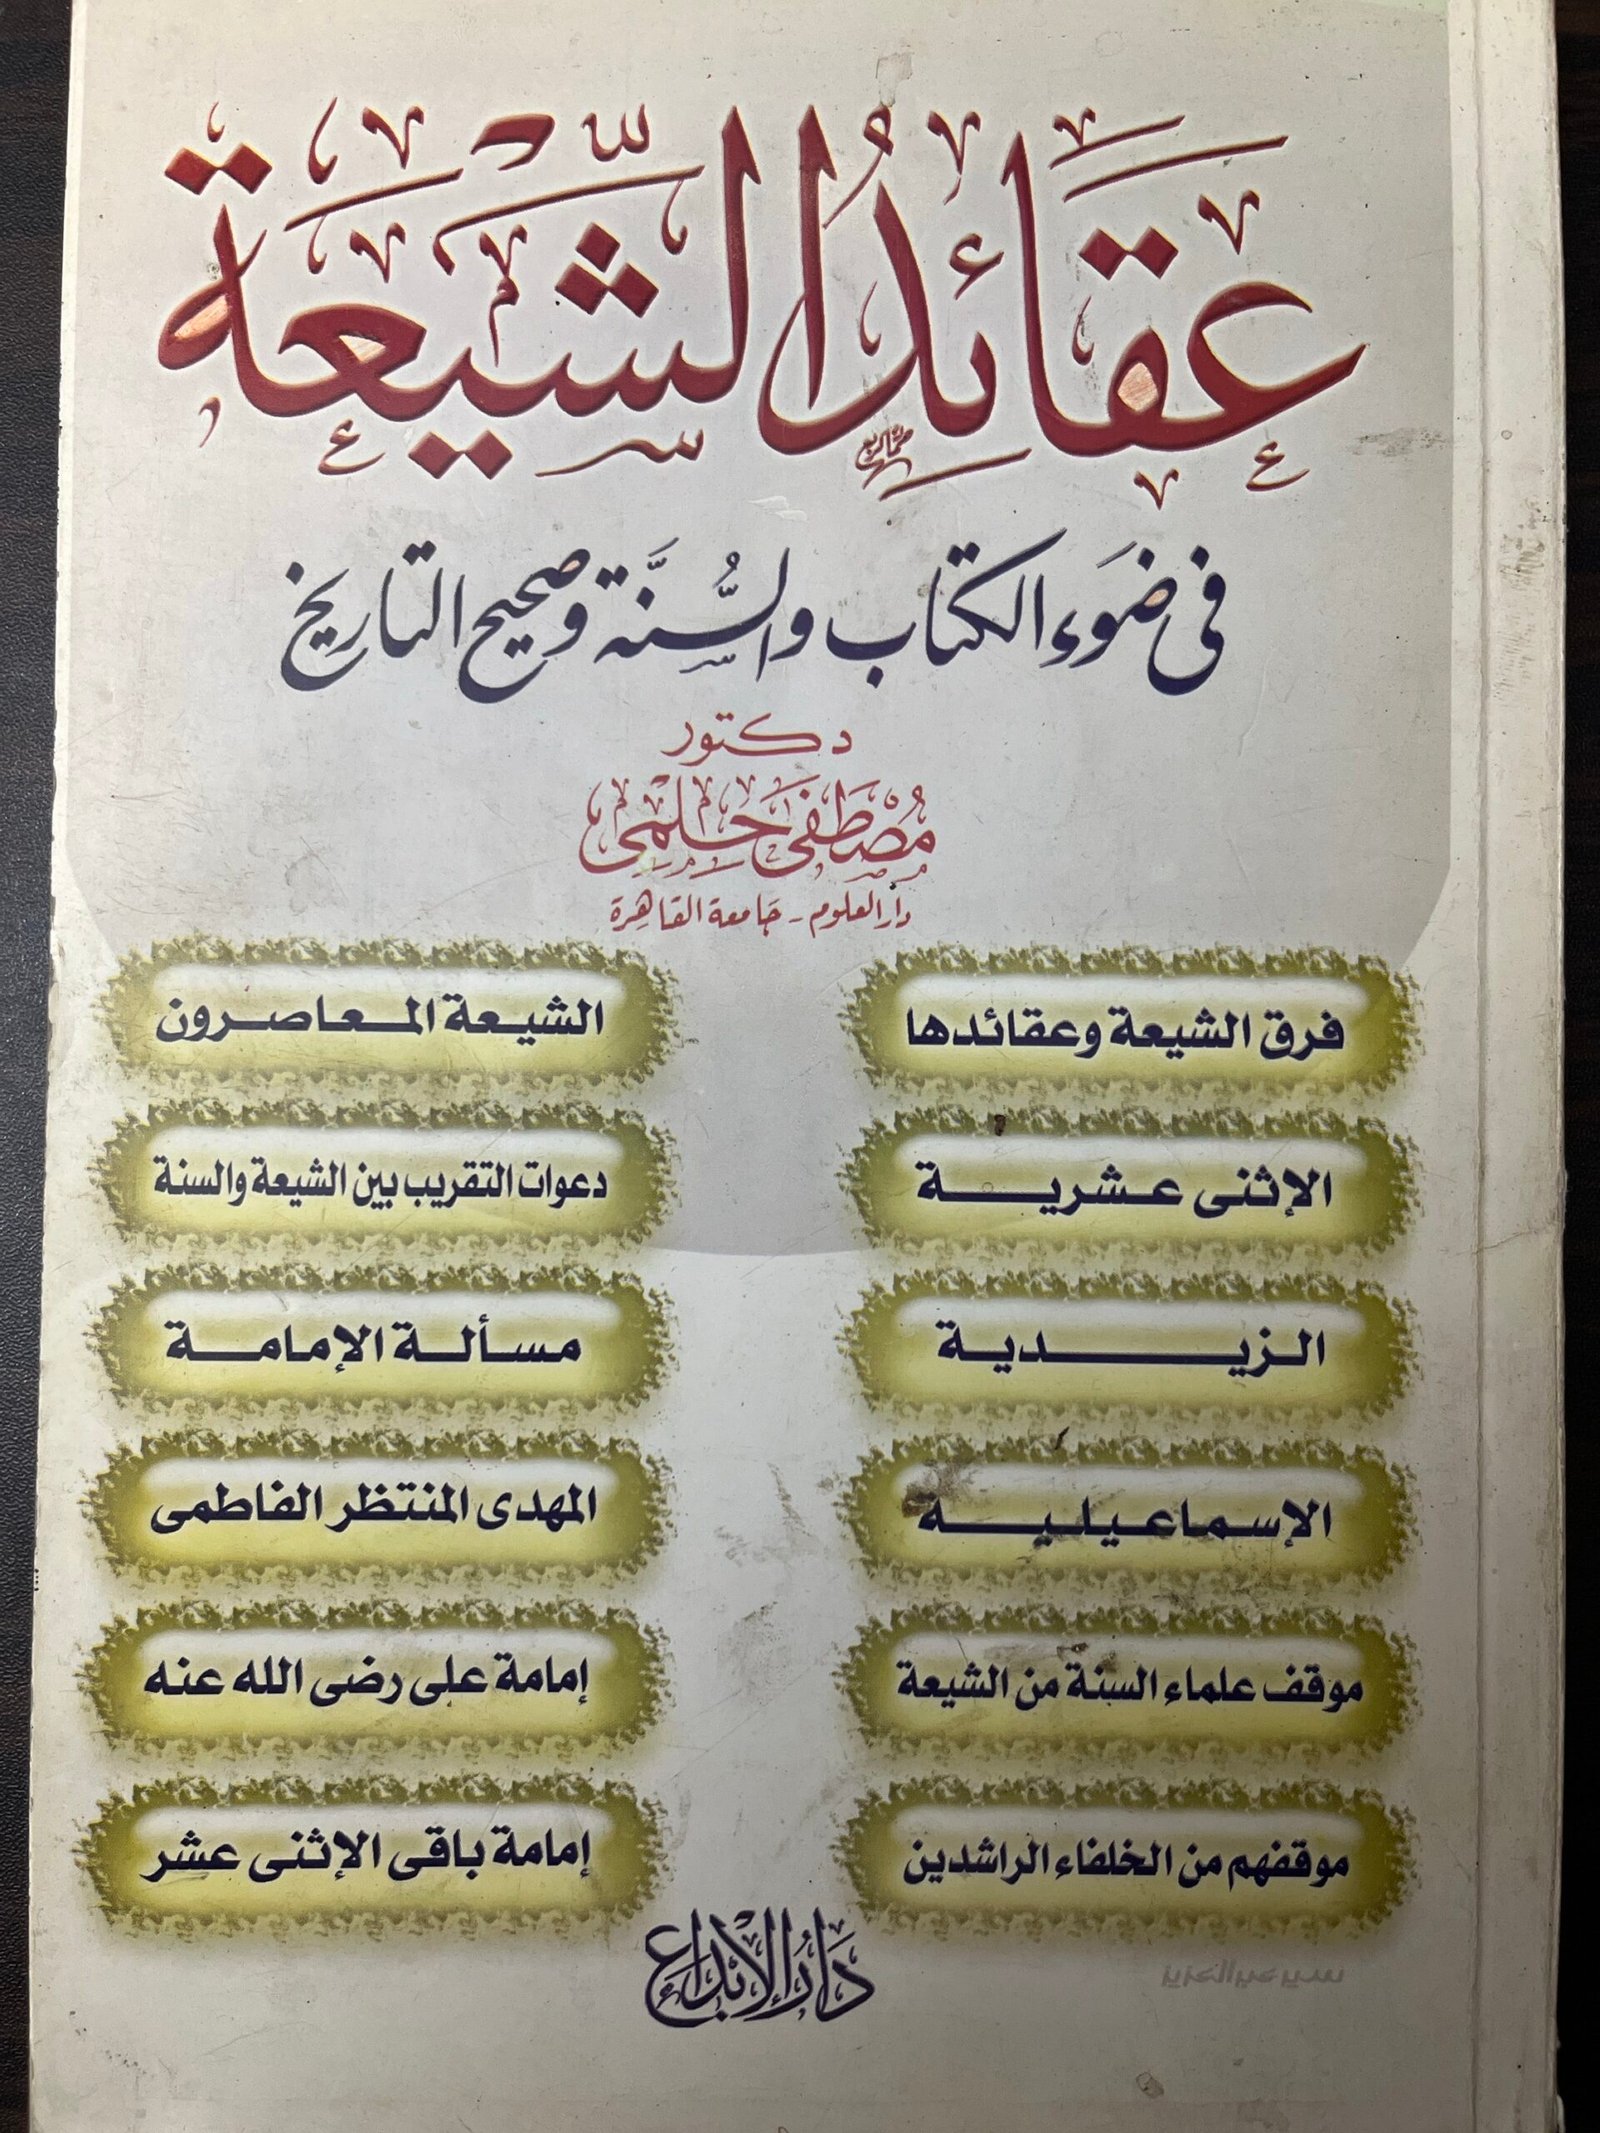 عقائد الشيعة
فى ضوء الكتاب والسنة وصحيح التاريخ
دكتور
مصطفى حلمى
دار العلوم - جامعة القاهرة
فرق الشيعة وعقائدها
الإثنى عشرية
الزيدية
الإسماعيلية
موقف علماء السنة من الشيعة
موقفهم من الخلفاء الراشدين
الشيعة المعاصرون
دعوات التقريب بين الشيعة والسنة
مسألة الإمامة
المهدى المنتظر الفاطمى
إمامة على رضى الله عنه
إمامة باقى الإثنى عشر
دار الإبداع